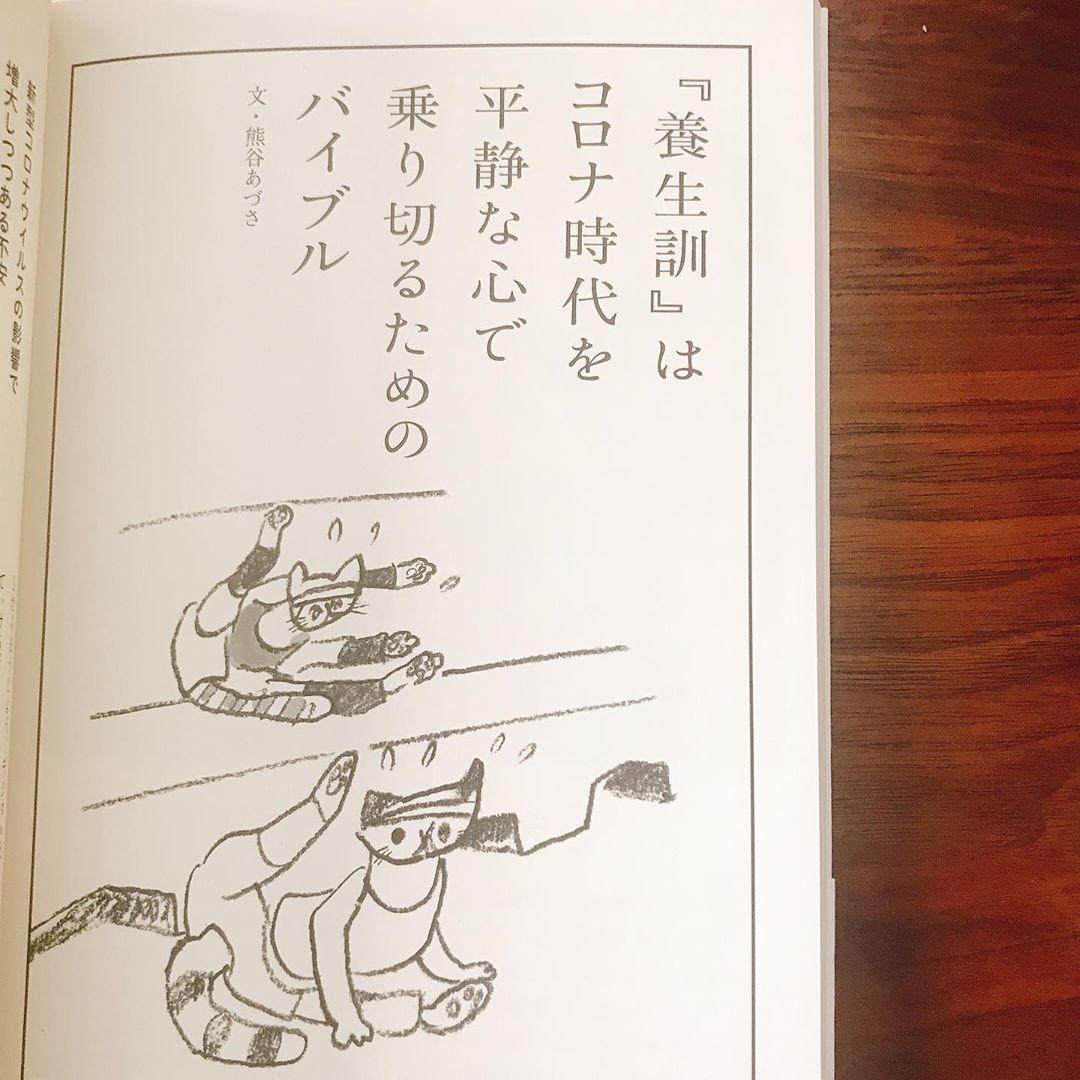 『養生訓』は
コロナ時代を
平静な心で
乗り切るための
バイブル
文・熊谷あづさ
新型コロナウイルスの影響で
増大しつつある不安